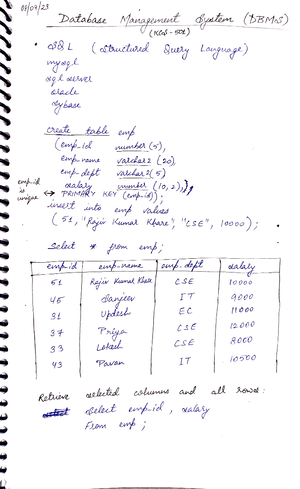 07/09/23
Database Management System (DBMS)
(KCS-501)
SQL (Structured Query Language)
mysql
sql server
oracle
sybase
create table emp
(emp_id number(5),
emp_name varchar2(20)
emp_dept varchar2(5)
salary number(10,2),
emp_id is unique ↔ PRIMARY KEY (emp_id));
insert into emp values
(51, "Rajiv Kumar Khare", "CSE", 10000);
Select * from emp;
emp_id emp_name emp_dept salary
51 Rajiv Kumar Khare CSE 10000
45 Sanjeev IT 9000
31 Updesh EC 11000
37 Priya CSE 12000
33 Lokesh CSE 8000
43 Pavan IT 10500
Retrieve selected columns and all rows:
Select emp_id, salary
From emp;